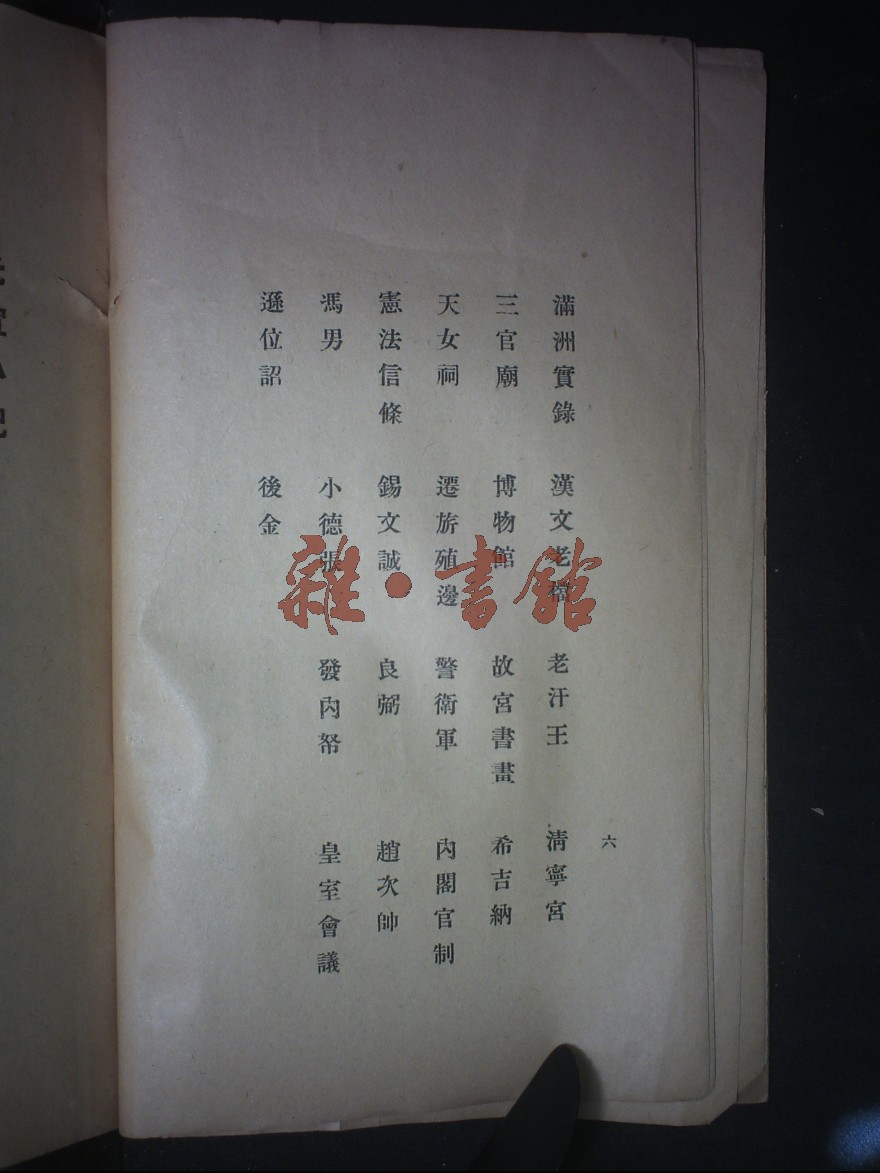 六
滿洲實錄 漢文老檔 老汗王 清寧宮
三官廟 博物館 故宮書畫 希吉納
天女祠 遷旂殖邊 警衛軍 內閣官制
憲法信條 錫文誠 良弼 趙次帥
馮男 小德張 發內帑 皇室會議
遜位詔 後金
雜·書館